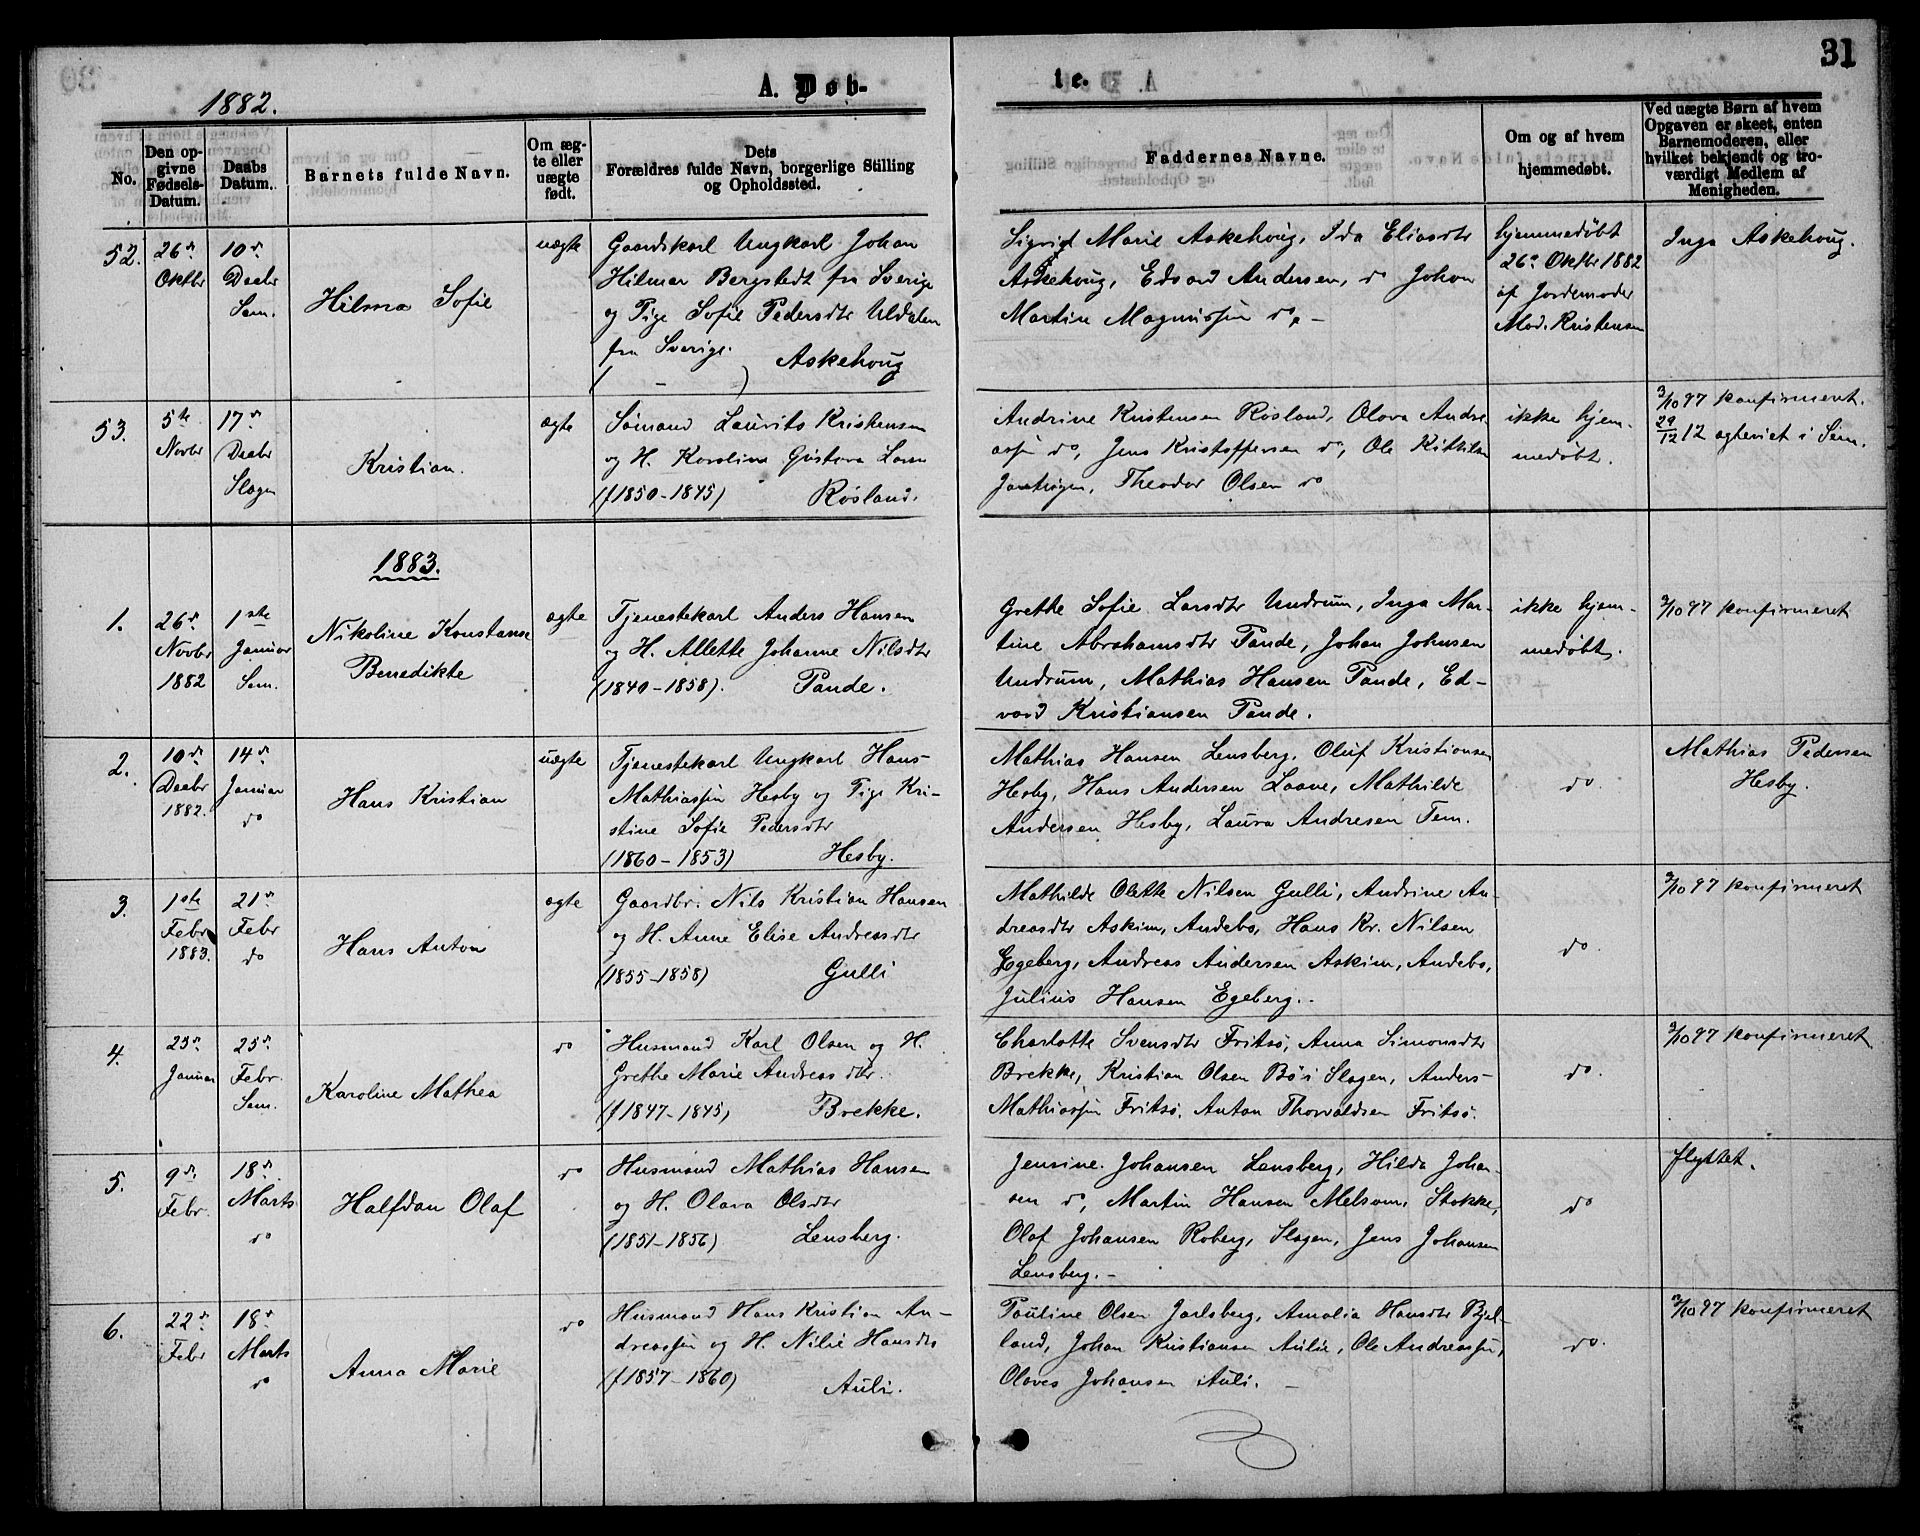 31
1882.
A. Døb-
te.
No.
Den op-
givne
Fødsels-
Datum.
Daabs
Datum.
Barnets fulde Navn.
Om æg-
te eller
uægte
født.
Dets
Forældres fulde Navn, borgerlige Stilling
og Opholdssted.
Faddernes Navne.
Om og af hvem
hjemmedøbt.
Ved uægte Børn af hvem
Opgaven er skeet, enten
Barnemoderen, eller
hvilket bekjendt og tro-
værdigt Medlem af
Menigheden.
52.
26de
Oktbr
10de
Decbr
Sem.
Hilma Sofie
uægte
Gaardskarl Ungkarl Johan
Hilmar Bergstedt fra Sverige
og Pige Sofie Pedersdtr Uldalen
fra Sverige.
( - ) Askehoug
Sigrid Marie Askehoug, Ida Eliasdtr
Askehoug, Edvard Andersen, do Johan
Martin Magnussen do. -
hjemmedøbt
26de Oktbr 1882
af Jordemoder
Mad. Kristensen
Inga Askehoug.
53.
5te
Novbr
17de
Decbr
Slagen
Kristian.
ægte
Sømand Laurits Kristensen
og H. Karoline Gustava Larsen
(f 1850-1845) Røsland.
Andrine Kristensen Røsland, Olava Andre-
assen do, Jens Kristoffersen do, Ole Kittilsen
Jarehögen, Theodor Olsen do
ikke hjem-
medøbt.
3/10 97 konfirmeret.
29/12 12 agteviet i Sem.
1883.
1.
26de
Novbr
1882
1ste
Januar
Sem.
Nikoline Konstanse
Benedikte
ægte
Tjenestekarl Anders Hansen
og H. Allette Johanne Nilsdtr
(1840-1858). Pande.
Grethe Sofie Larsdtr Undrum, Inga Mar-
tine Abrahamsdtr Pande, Johan Johnsen
Undrum, Mathias Hansen Pande, Ed-
vard Kristiansen Pande.
ikke hjem-
medøbt.
3/10 97 konfirmeret
2.
10de
Decbr
1882.
14de
Januar
do
Hans Kristian
uægte
Tjenestekarl Ungkarl Hans
Mathiassen Hesby og Pige Kri-
stine Sofie Pedersdtr
(1860-1853) Hesby.
Mathias Hansen Lensberg, Oluf Kristiansen
Hesby, Hans Andersen Laane, Mathilde
Andersen Hesby, Laura Andresen Tem.
do.
Mathias Pedersen
Hesby.
3.
1ste
Febr
1883.
21de
Febr
do
Hans Anton
ægte
Gaardbr. Nils Kristian Hansen
og H. Anne Elise Andreasdtr
(1855-1858) Gulli
Mathilde Olette Nilsen Gulli, Andrine An-
dreasdtr Askim, Andebo, Hans Kr. Nilsen
Egeberg, Andreas Andersen Askim, Andebo,
Julius Hansen Egeberg.
do
3/10 97 konfirmeret
4.
23de
Januar
25de
Febr.
Sem.
Karoline Mathea
do
Husmand Karl Olsen og H.
Grethe Marie Andreasdtr.
(f 1847-1845) Brekke.
Charlotte Svensdtr Fritsø, Anna Simonsdtr
Brekke, Kristian Olsen Bø i Slagen, Anders
Mathiassen Fritsø, Anton Thorvaldsen Fritsø.
do.
3/10 97 konfirmeret
5.
9de
Febr.
18de
Marts
do
Halfdan Olaf
do
Husmand Mathias Hansen
og H. Olava Olsdtr
(1851-1856) Lensberg.
Jensine Johansen Lensberg, Hilda Johan-
sen do, Martin Hansen Melsom, Stokke,
Olaf Johansen Roberg, Slagen, Jens Johansen
Lensberg. -
do
flyttet.
6.
22de
Febr
18de
Marts
do
Anna Marie
do
Husmand Hans Kristian An-
dreassen og H. Nilie Hansdtr
(f 1857-1860) Auli.
Pauline Olsen Jarlsberg, Amalia Hansdtr Bjel-
land, Johan Kristiansen Aulie, Ole Andreassen,
Olaves Johansen Auli. -
do.
3/10 97 konfirmeret